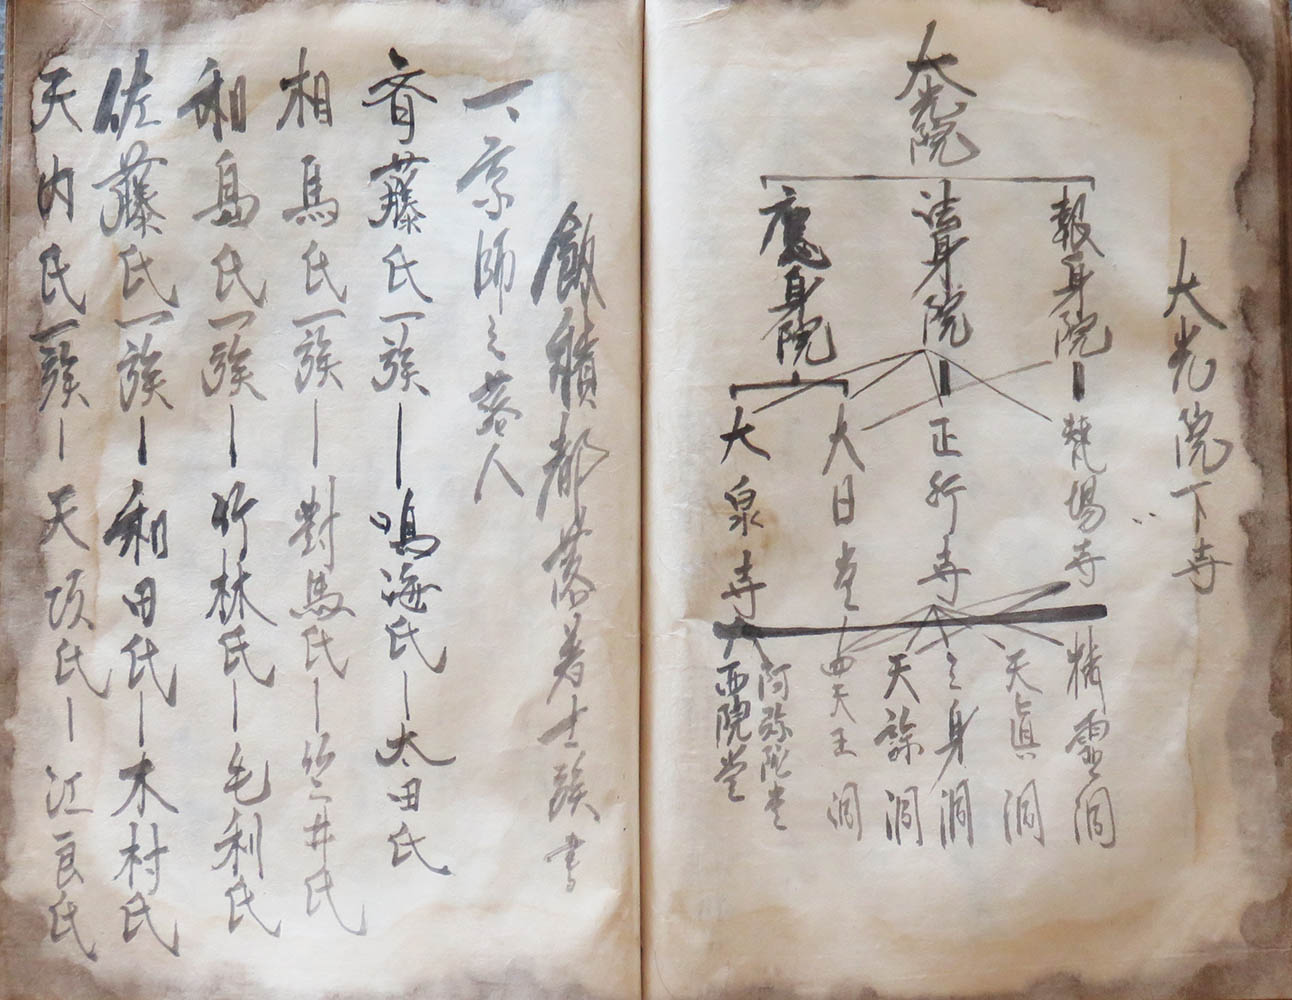 大光院下寺
大光院
報身院
法身院
應身院
梵場寺
正行寺
大日堂
大泉寺
精霊洞
天眞洞
之身洞
天諦洞
四天王洞
阿弥陀堂
西院堂
飯積都落着士族書
一、京師之落人
斉藤氏一族―鳴海氏―太田氏
相馬氏一族―對馬氏―竹井氏
和島氏一族―竹林氏―毛利氏
佐藤氏一族―和田氏―木村氏
天内氏一族―天坂氏―江良氏